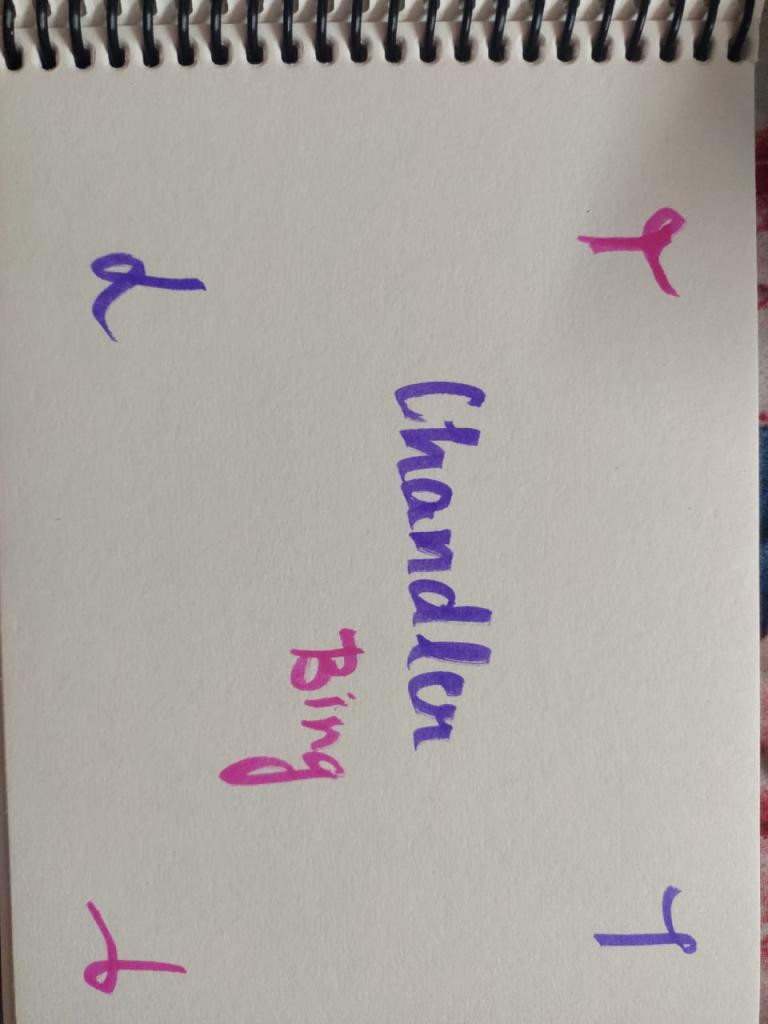 Chandler
Bing